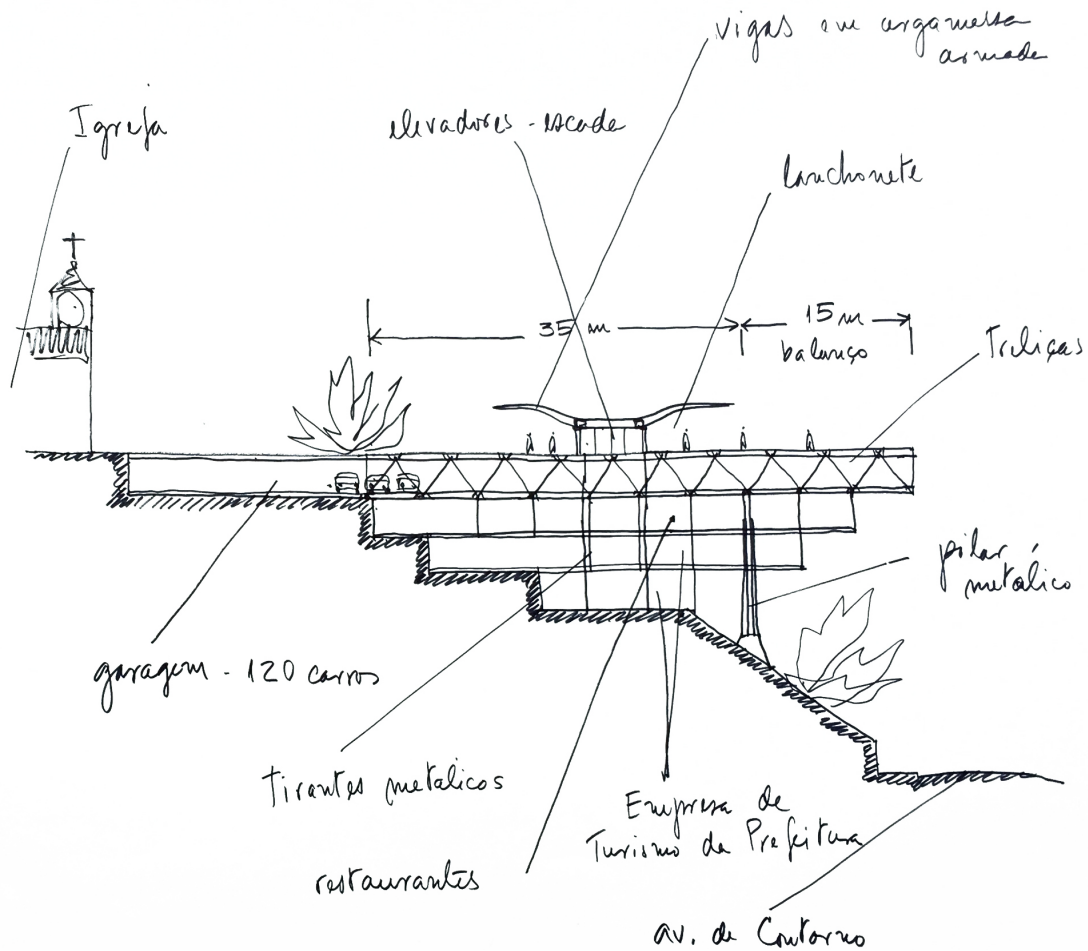 vigas em argamassa
armada
Igreja
elevadores - escada
lanchonete
35 m
15 m
balanço
Treliças
pilar
metálico
garagem - 120 carros
tirantes metalicos
Empresa de
Turismo da Prefeitura
restaurantes
av. de Contorno